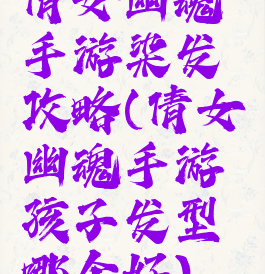 倩女幽魂
手游染发
攻略(倩女
幽魂手游
孩子发型
哪个好)